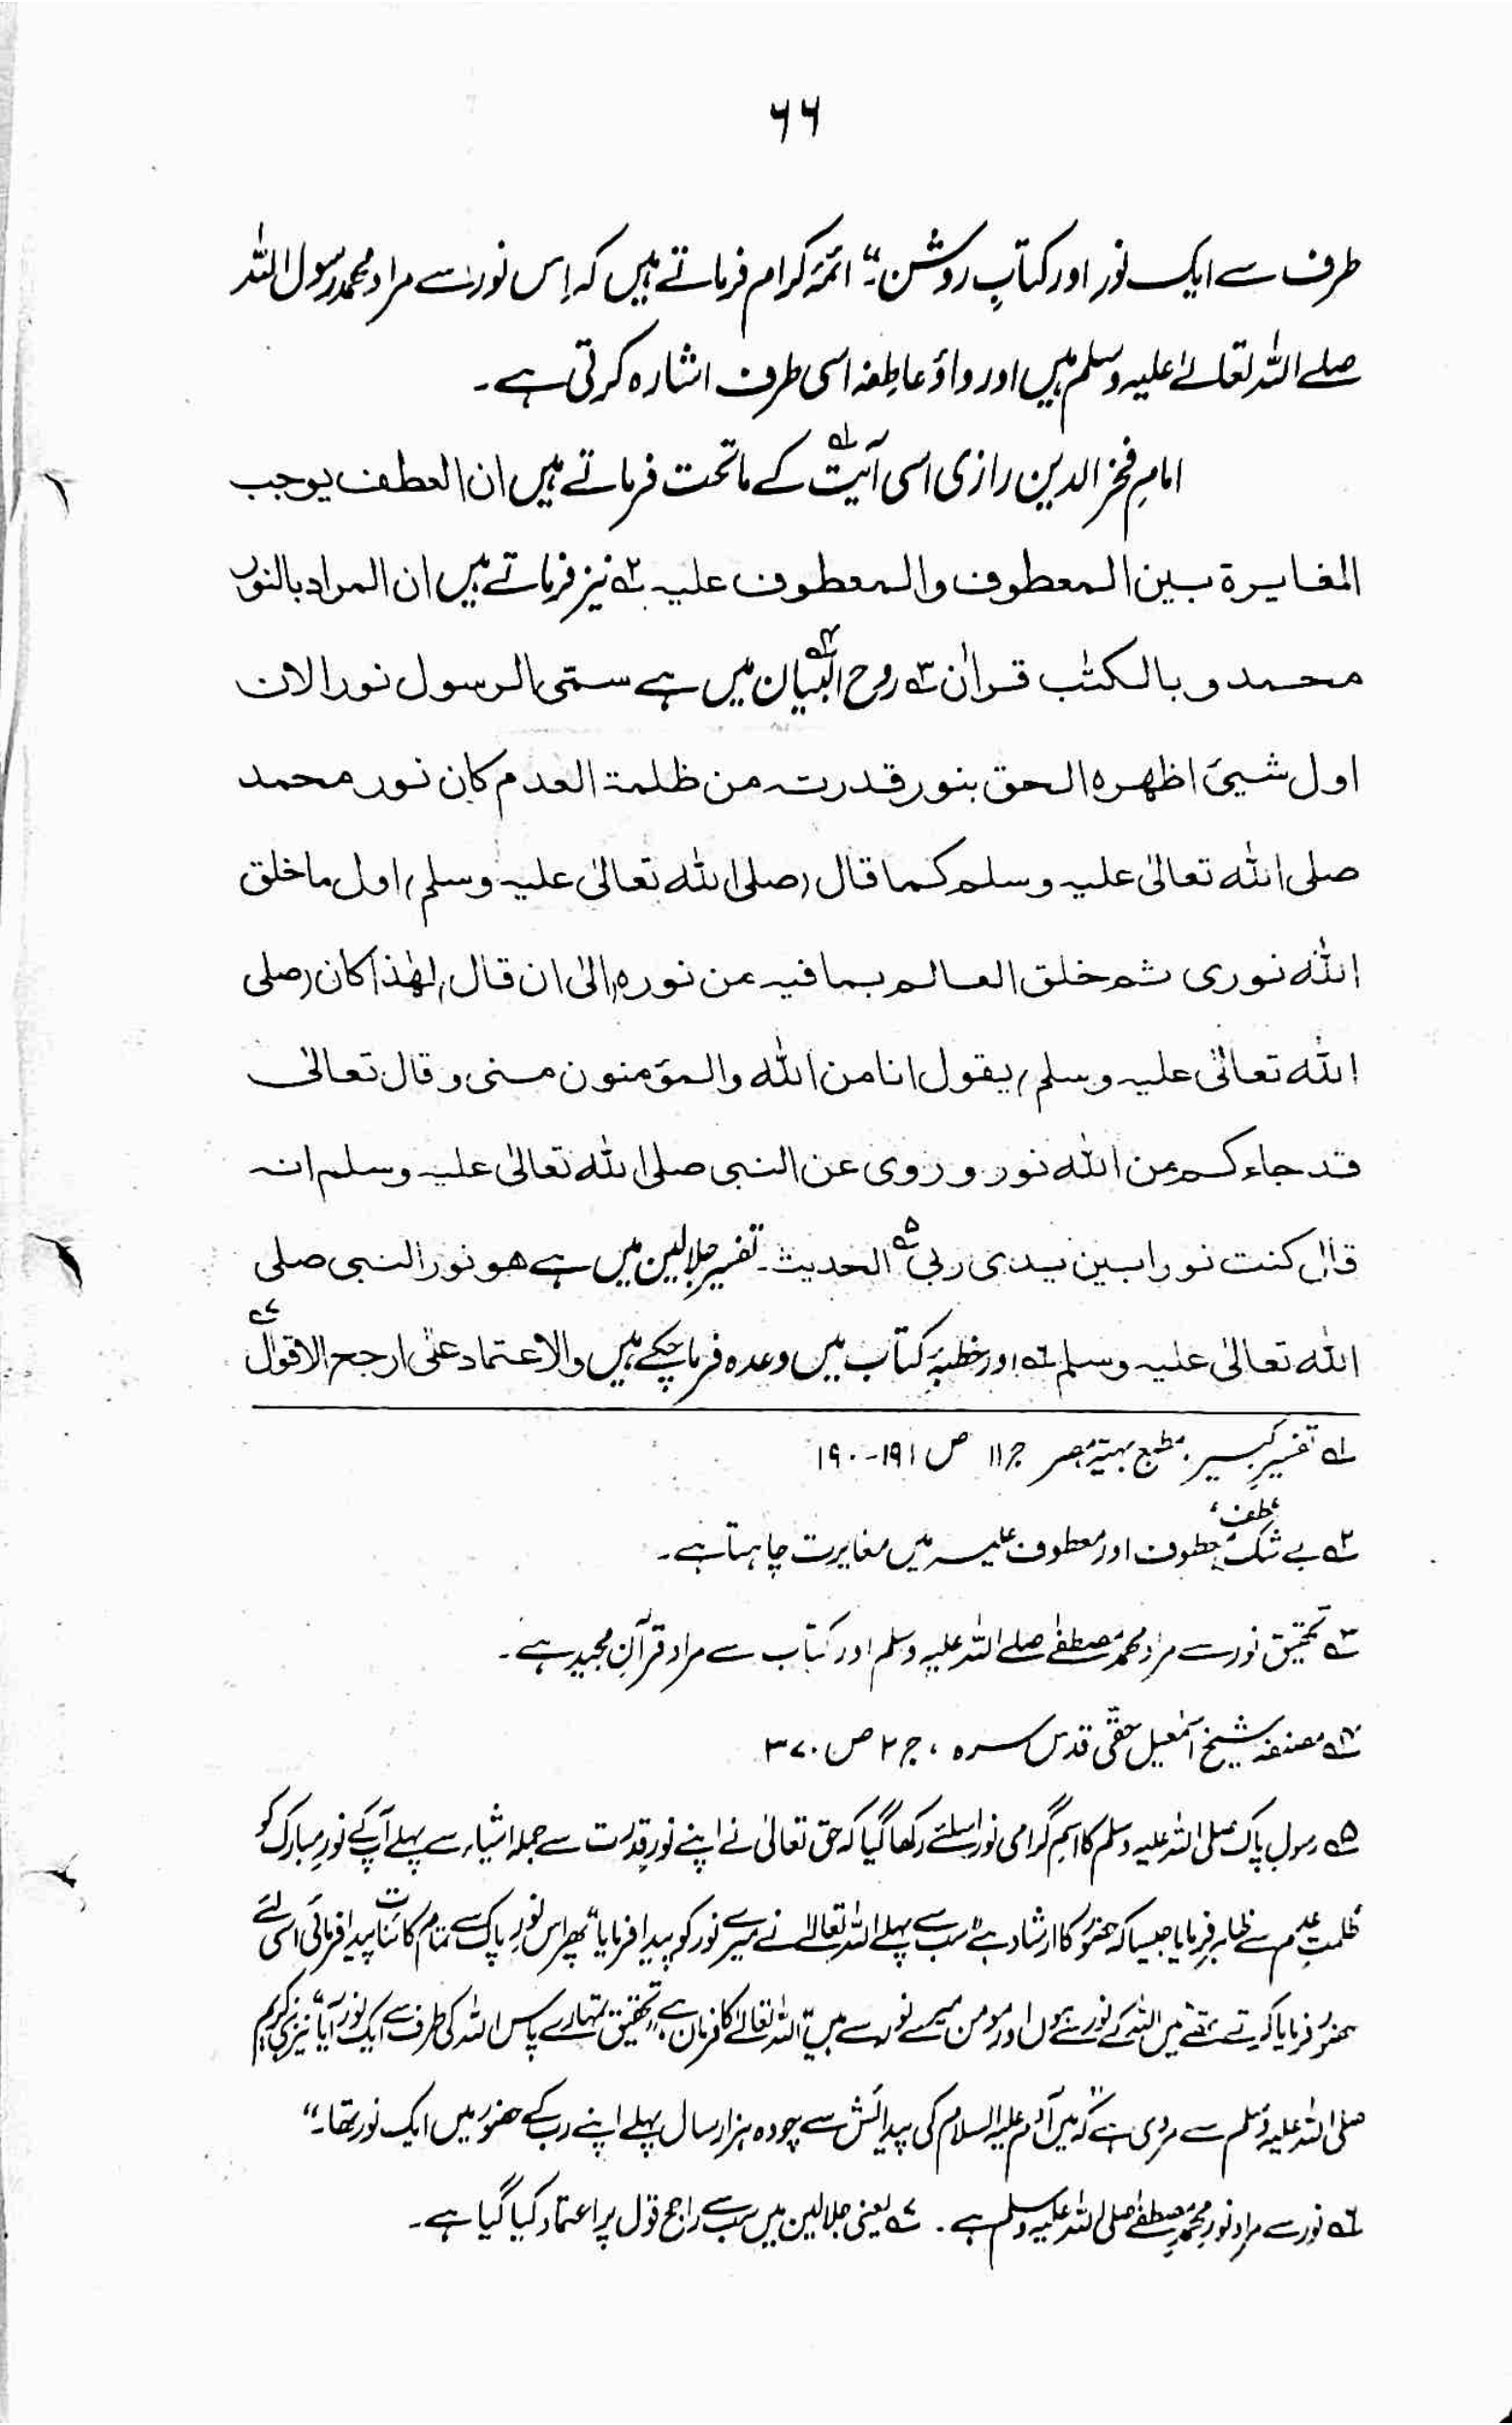 ۶۶
طرف سے ایک نور اور کتابِ روشن۔“ ائمۂ کرام فرماتے ہیں کہ اِس نور سے مراد محمد رسول اللہ
صلے اللہ تعالےٰ علیہ وسلم ہیں اور واؤ عاطفہ اسی طرف اشارہ کرتی ہے۔
امام فخر الدین رازی اسی آیت۱؎ کے ماتحت فرماتے ہیں ان العطف یوجب
المغایرۃ بین المعطوف والمعطوف علیہ۲؎ نیز فرماتے ہیں ان المراد بالنور
محمد و بالکتٰب قراٰن۳؎ روح البیان۴؎ میں ہے سمّی الرسول نورا لان
اول شیئ اظھرہ الحق بنور قدرتہ من ظلمۃ العدم کان نور محمد
صلی اللہ تعالیٰ علیہ وسلم کما قال (صلی اللہ تعالیٰ علیہ وسلم) اول ما خلق
اللہ نوری ثم خلق العالم بما فیہ من نورہ (الیٰ ان قال) لھٰذا کان (صلی
اللہ تعالیٰ علیہ وسلم) یقول انا من اللہ والمؤمنون منی و قال تعالیٰ
قد جاءکم من اللہ نور و روی عن النبی صلی اللہ تعالیٰ علیہ وسلم انہ
قال کنت نورا بین یدی ربی۵؎ الحدیث۔ تفسیر جلالین میں ہے ھو نور النبی صلی
اللہ تعالیٰ علیہ وسلم۶؎ اور خطبۂ کتاب میں وعدہ فرما چکے ہیں والاعتماد علیٰ ارجح الاقوال۷؎
۱؎ تفسیر کبیر، مطبع بہیّۃ مصر ج ۱۱ ص ۱۹۱-۱۹۰
۲؎ بے شک عطف، معطوف اور معطوف علیہ میں مغایرت چاہتا ہے۔
۳؎ تحقیق نور سے مراد محمد مصطفےٰ صلے اللہ علیہ وسلم اور کتاب سے مراد قرآنِ مجید ہے۔
۴؎ مصنفہ شیخ اسمٰعیل حقّی قدس سرہ، ج ۲ ص ۳۷۰
۵؎ رسولِ پاک صلی اللہ علیہ وسلم کا اسمِ گرامی نور اسلئے رکھا گیا کہ حق تعالیٰ نے اپنے نورِ قدرت سے جملہ اشیاء سے پہلے آپ کے نورِ مبارک کو
ظلمتِ عدم سے ظاہر فرمایا جیسا کہ حضور کا ارشاد ہے ”سب سے پہلے اللہ تعالےٰ نے میرے نور کو پیدا فرمایا“ پھر اس نورِ پاک سے تمام کائنات پیدا فرمائی اسی لئے
حضور فرمایا کرتے تھے میں اللہ کے نور سے ہوں اور مومن میرے نور سے ہیں“ اللہ تعالےٰ کا فرمان ہے ”تحقیق تمہارے پاس اللہ کی طرف سے ایک نور آیا“ نیز نبی کریم
صلی اللہ علیہ وسلم سے مروی ہے کہ ”میں آدم علیہ السلام کی پیدائش سے چودہ ہزار سال پہلے اپنے رب کے حضور میں ایک نور تھا۔“
۶؎ نور سے مراد نورِ محمد مصطفےٰ صلی اللہ علیہ وسلم ہے۔ ۷؎ یعنی جلالین میں سب سے راجح قول پر اعتماد کیا گیا ہے۔